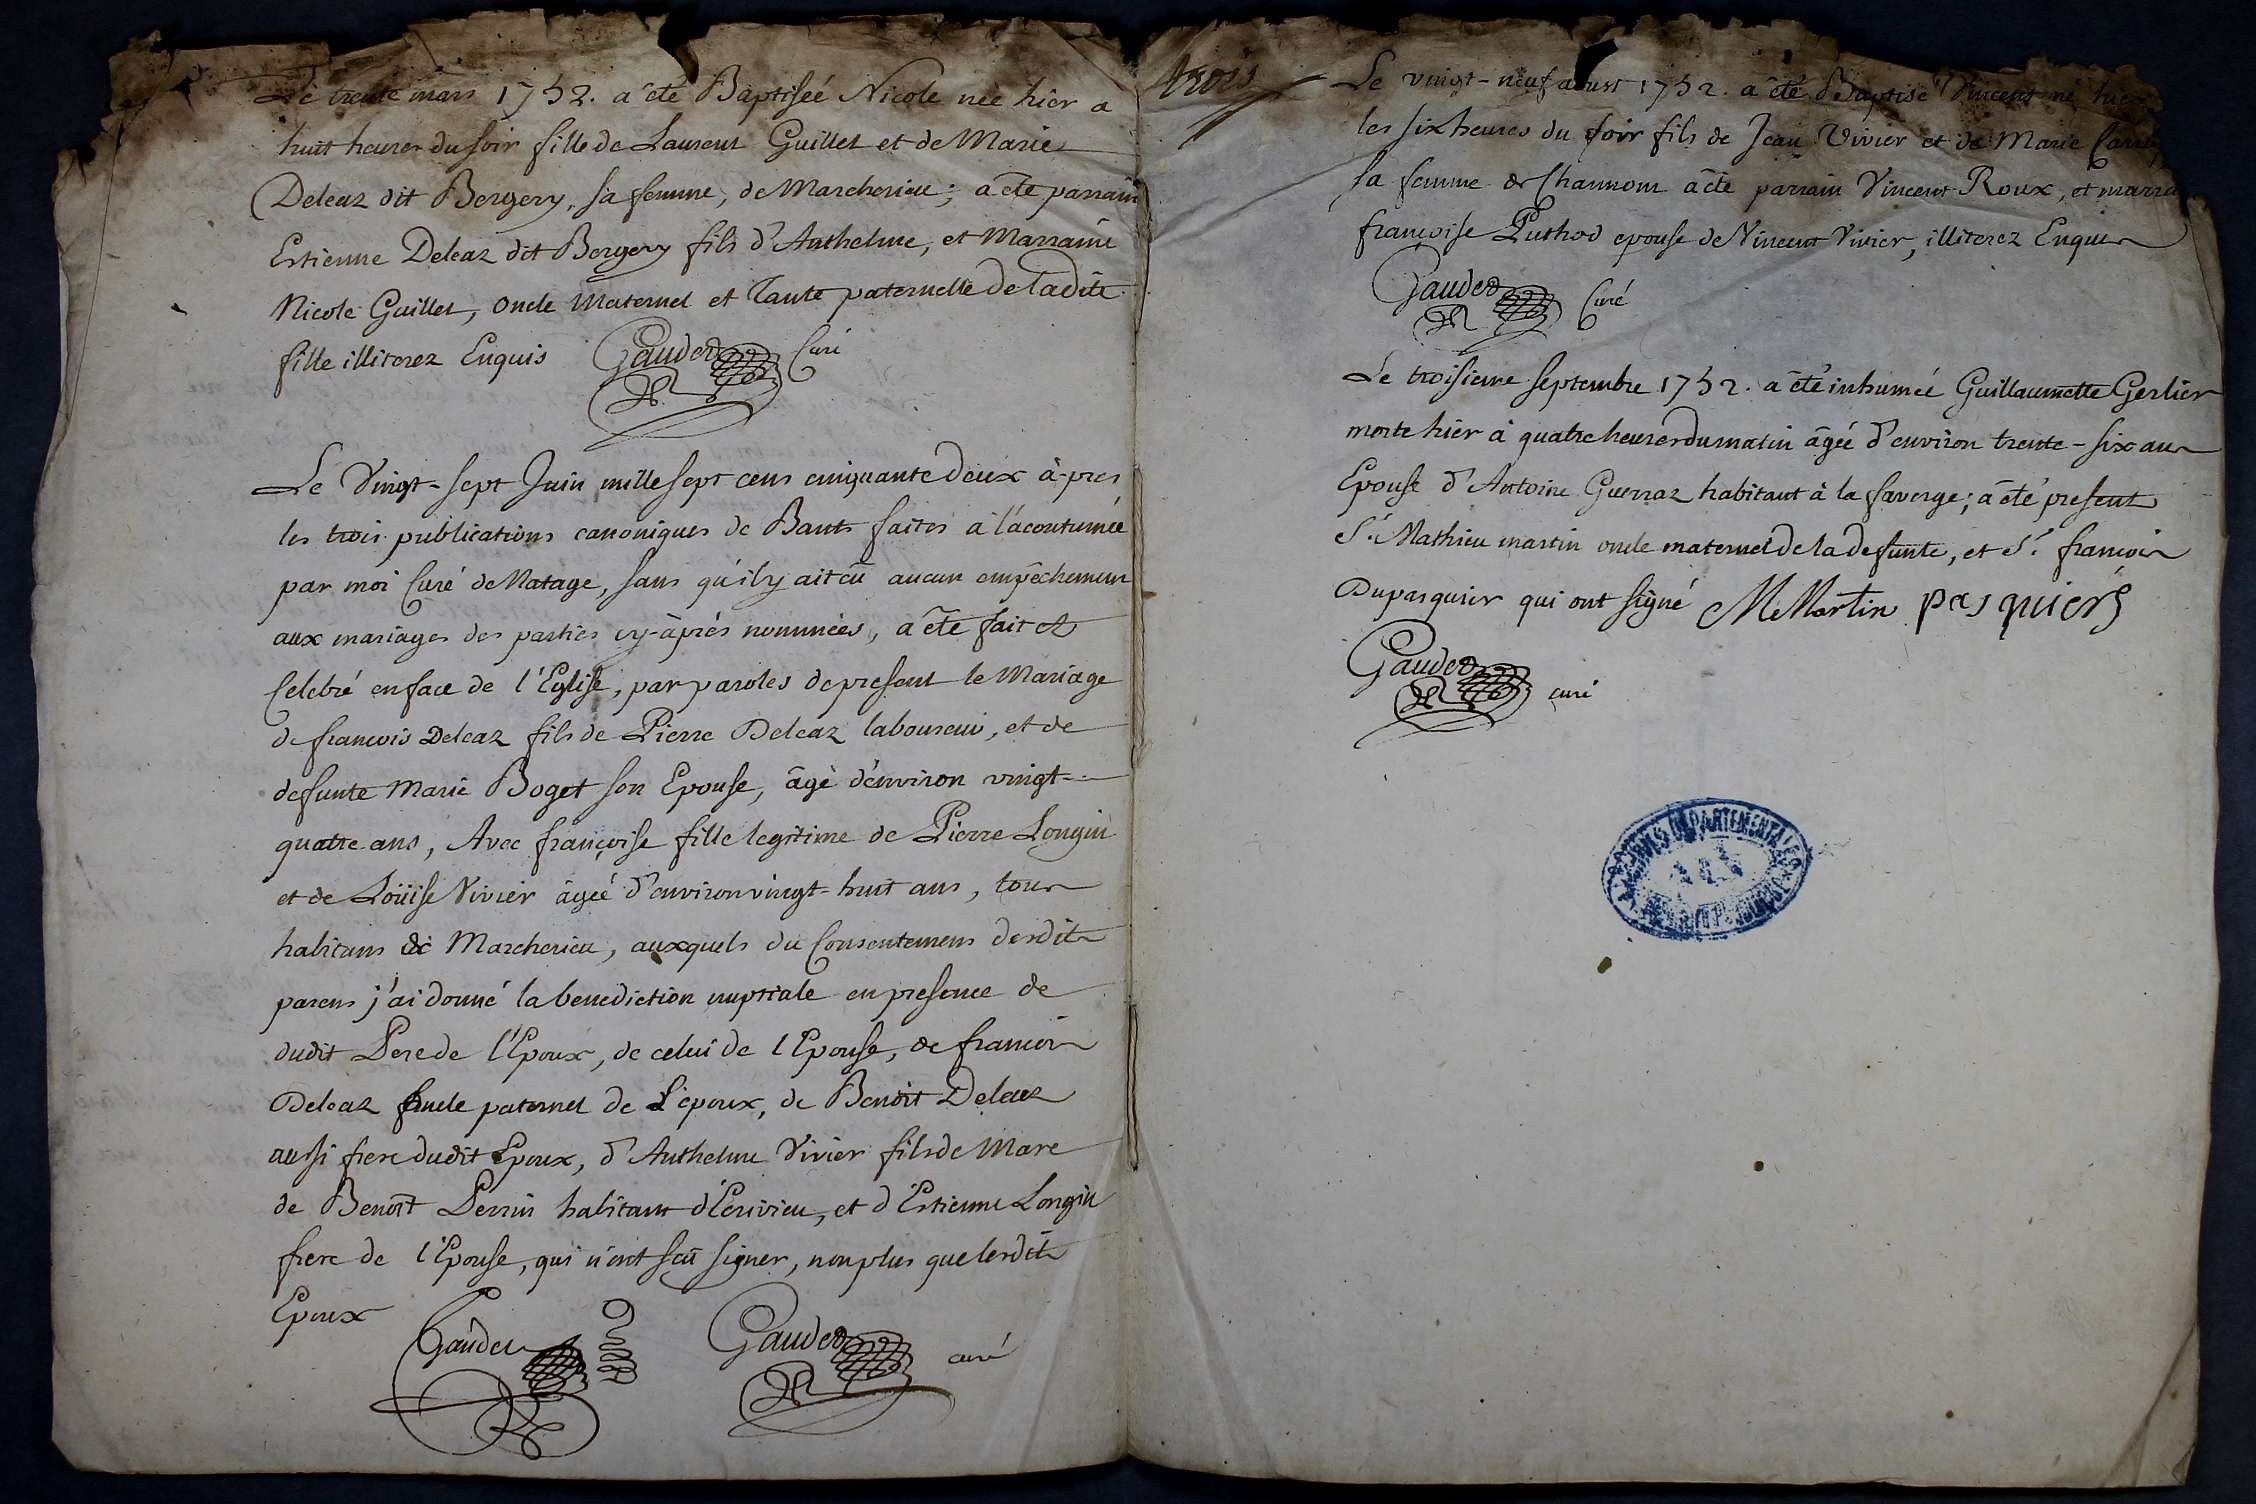 Le trente mars 1752. a été Baptisée Nicole née hier a
huit heures du soir fille de Laurent Guillet et de Marie
Deleaz dit Bergery, sa femme, de Marcherieu; a été parrain
Estienne Deleaz dit Bergery fils d'Anthelme, et Marraine
Nicole Guillet, oncle Maternel et Tante paternelle de ladite
fille illiterez Enquis Gaudet Curé
Le Vingt-sept Juin mille sept cens cinquante deux à-pres
les trois publications canoniques de Bants faites à l'acoutumée
par moi Curé de Natage, sans qu'il y ait eû aucun empêchement
aux mariages des parties cy-àprés nommées, a été fait et
Celebré en face de l'Eglise, par paroles de present le Mariage
de françois Deleaz fils de Pierre Deleaz laboureur, et de
defunte Marie Boget son Epouse, âgé d'environ vingt-
quatre ans, Avec françoise fille legitime de Pierre Longin
et de Loüise Vivier âgée d'environ vingt-huit ans, tous
habitans de Marcherieu, auxquels du Consentement desdits
parens j'ai donné la benediction nuptiale en presence de
dudit Pere de l'Epoux, de celui de l'Epouse, de françois
Deleaz oncle paternel de L'epoux, de Benoit Deleaz
aussi frere dudit Epoux, d'Anthelme Vivier fils de Marc
de Benoît Perrin habitant d'Ecrivieu, et d'Estienne Longin
frere de l'Epouse, qui n'ont scû signer, non plus que lesdits
Epoux
Gaudet Gaudet curé
trois
Le vingt-neuf aoust 1752. a été Baptisé Vincent né hier
les six heures du soir fils de Jean Vivier et de Marie
sa femme de Channom a été parrain Vincent Roux, et marraine
françoise Puthod epouse de Vincent Vivier, illiterez Enquis
Gaudet Curé
Le troisieme septembre 1752. a été inhumée Guillaumette Gerlier
morte hier à quatre heures du matin âgée d'environ trente-six ans
Epouse d'Antoine Guerraz habitant à la faverge; a été present
Sr. Mathieu martin oncle maternel de la defunte, et Sr. françois
Dupasquier qui ont signé M Martin pasquier
Gaudet curé
ARCHIVES DEPARTEMENTALES